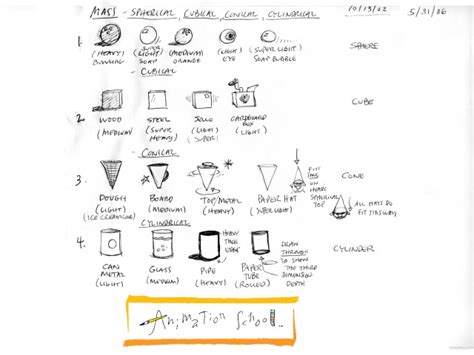 MASS - SPHERICAL, CUBICAL, CONICAL, CYLINDRICAL
10/13/22
5/31/06
1.
(HEAVY) BOWLING
(LIGHT) SOAP
(MEDIUM) ORANGE
(LIGHT) EYE
(SUPER LIGHT) SOAP BUBBLE
SPHERE
- CUBICAL
2.
WOOD (MEDIUM)
STEEL (SUPER HEAVY)
JELLO (LIGHT) (SUPER)
CARDBOARD BOX (LIGHT)
CUBE
- CONICAL
3.
DOUGH (LIGHT) (ICE CREAM CONE)
BOARD (MEDIUM)
TOP/METAL (HEAVY)
PAPER HAT (SUPER LIGHT)
FITS
ON
HEAD
SPHERICAL
TOP
CONE
ALL HATS DO
FIT THIS WAY
CYLINDRICAL
4.
CAN METAL (LIGHT)
GLASS (MEDIUM)
PIPE (HEAVY)
HEAVY
DARK
EDGE
PAPER TUBE (ROLLED)
DRAW
THROUGH
TO SHOW
THE THIRD
DIMENSION
DEPTH
CYLINDER
Animation School